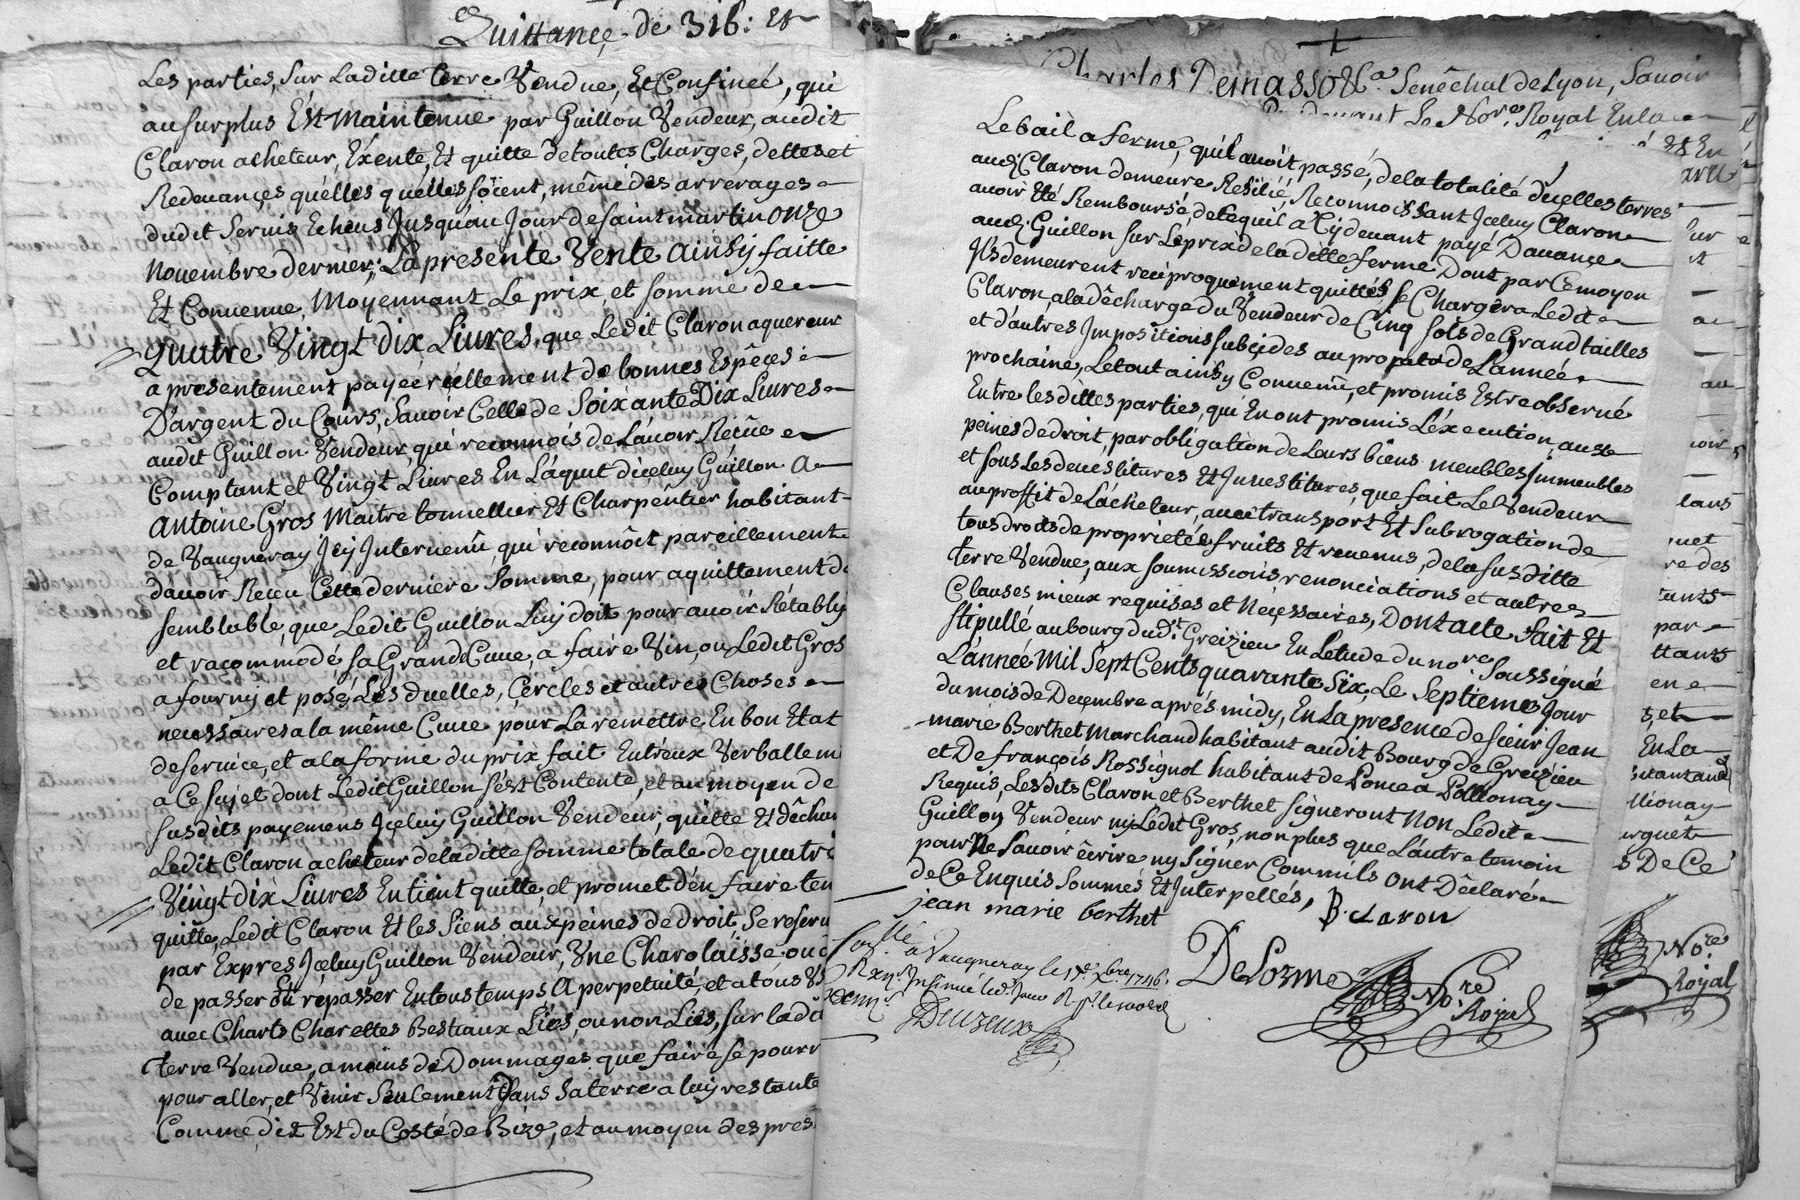 Quittance de 3 lb: et
Les parties, Sur Laditte terre Vendue, Et Confineé, qui
au surplus Est Maintenue par Guillon Vendeur, audit
Claron acheteur, Exente, Et quitte de toutes Charges, dettes et
Redevançes quelles quelles soient, même des arrérages
dudit Servis Echeus Jusquau Jour de saint martin onze
Novembre dernier; La presente Vente ainsy faitte
Et Convenue, Moyennant Le prix, et somme de
Quatre Vingt dix Livres, que Ledit Claron aquereur
a presentement payée réellement de bonnes Espéçes
D'argent du Cours, Savoir Celle de Soixante Dix Livres
audit Guillon Vendeur qui reconnois de L'avoir Reçüe
Comptant et Vingt Livres En L'aquit d'iceluy Guillon A
antoine Gros Maitre tonnellier Et Charpentier habitant
de Vaugneray Jcy Intervenû qui reconnôit pareillement
davoir Recu Cette derniere Somme, pour aquittement d
semblable, que Ledit Guillon Luy doit pour avoir Rétably
et racommodé sa Grande Cuve, a faire Vin, ou Ledit Gros
a fourny et posé Les duelles, Çercles et autres Choses
néçéssaires a la même Cuve pour La remettre En bon Etat
de service, et a la forme du prix fait Entreux Verballem
a Ce sujet dont Ledit Guillon s'est Contenté, et au moyen de
susdits payemens Jçeluy Guillon Vendeur, quitte Et dêchar
Ledit Claron acheteur de laditte somme totale de quatre
Vingt dix Livres En tient quitte, et promet d'en faire ten
quitte, Ledit Claron Et les Siens aux peines de droit, Se reserv
par Expres Jçeluy Guillon Vendeur, Vne Charolaisse ou d
de passer Et répasser En tous temps A perpetuité, et a tous Vs
avec Charts Charettes Bestiaux Liés, ou non Liés, sur la di
terre Vendue, a moins de Dommages que faire se pourr
pour aller, et Venir Seulement Dans sa terre a luy restante
Comme dit Est du Costé de Bize, et au moyen des pres
Charles Demasso &a. Senêchal de Lyon, Savoir
Le Nore. Royal
Et En
Le bail a ferme, qu'il avoit passé, de la totalité d'icelles terres
audi. Claron demeure Resilié, Reconnoissant Jceluy Claron
avoir Eté Remboursé, de Cequil a Cy devant payé D'avançe
audi. Guillon sur Le prix de la ditte ferme Dont par Ce moyen
Jls demeurent reciproquement quittes, se Chargera Ledit
Claron, a la dêcharge du Vendeur de Cinq sols de Grand tailles
et d'autres Jmpositions subçides au pro rato de L'année
prochaine, Le tout ainsy Convenu, et promis Estre observé
Entre les dittes parties, qui En ont promis L'éxecution, aux
peines de droit, par obligation de Leurs biens meubles Immeubles
et sous Les devestitures Et Jnvestitures, que fait Le Vendeur
au proffit de L'acheteur, avec transport Et Subrogation de
tous droits de proprietés fruits Et revenus, de la susditte
terre Vendue, aux soumissions renonciations et autres
Clauses mieux requises et Néçessaires, Dont acte Fait Et
Stipullé au bourg dudt. Greizieu En L'etude du nore. Soussigné
L'année Mil Sept Cents quarante Six, Le Septieme Jour
du mois de Decembre aprés midy, En La presence de sieur Jean
marie Berthet Marchand habitant audit Bourg de Greizieu
et De françois Rossignol habitant de Lomea Pollionay
Requis, Lesdits Claron et Berthet signeront Non Ledit
Guillon Vendeur ny Ledit Gros, non plus que L'autre temoin
pour Ne Savoir êcrire ny Signer Comm'ils ont Dêclaré
de Ce Enquis Sommés Et Interpellés,
B. Claron
jean marie berthet
DeLorme
Nore.
Royal
a Vaugneray le 17e. Xbre 1746.
Deuzeux
lans
re des
par
en
En La
llionay
s De Ce
Nore.
Royal